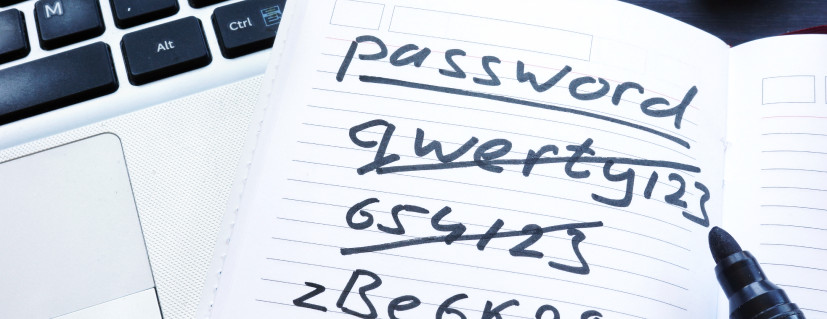 M
Alt
Ctrl
password
qwerty123
654123